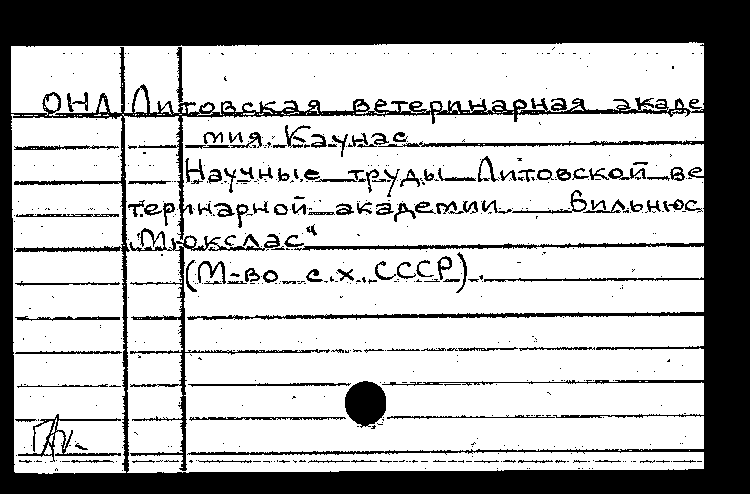 ОНД Литовская ветеринарная акаде
мия. Каунас.
Научные труды Литовской ве
теринарной академии. Вильнюс
„Мюкслас“
(М-во с.х. СССР).